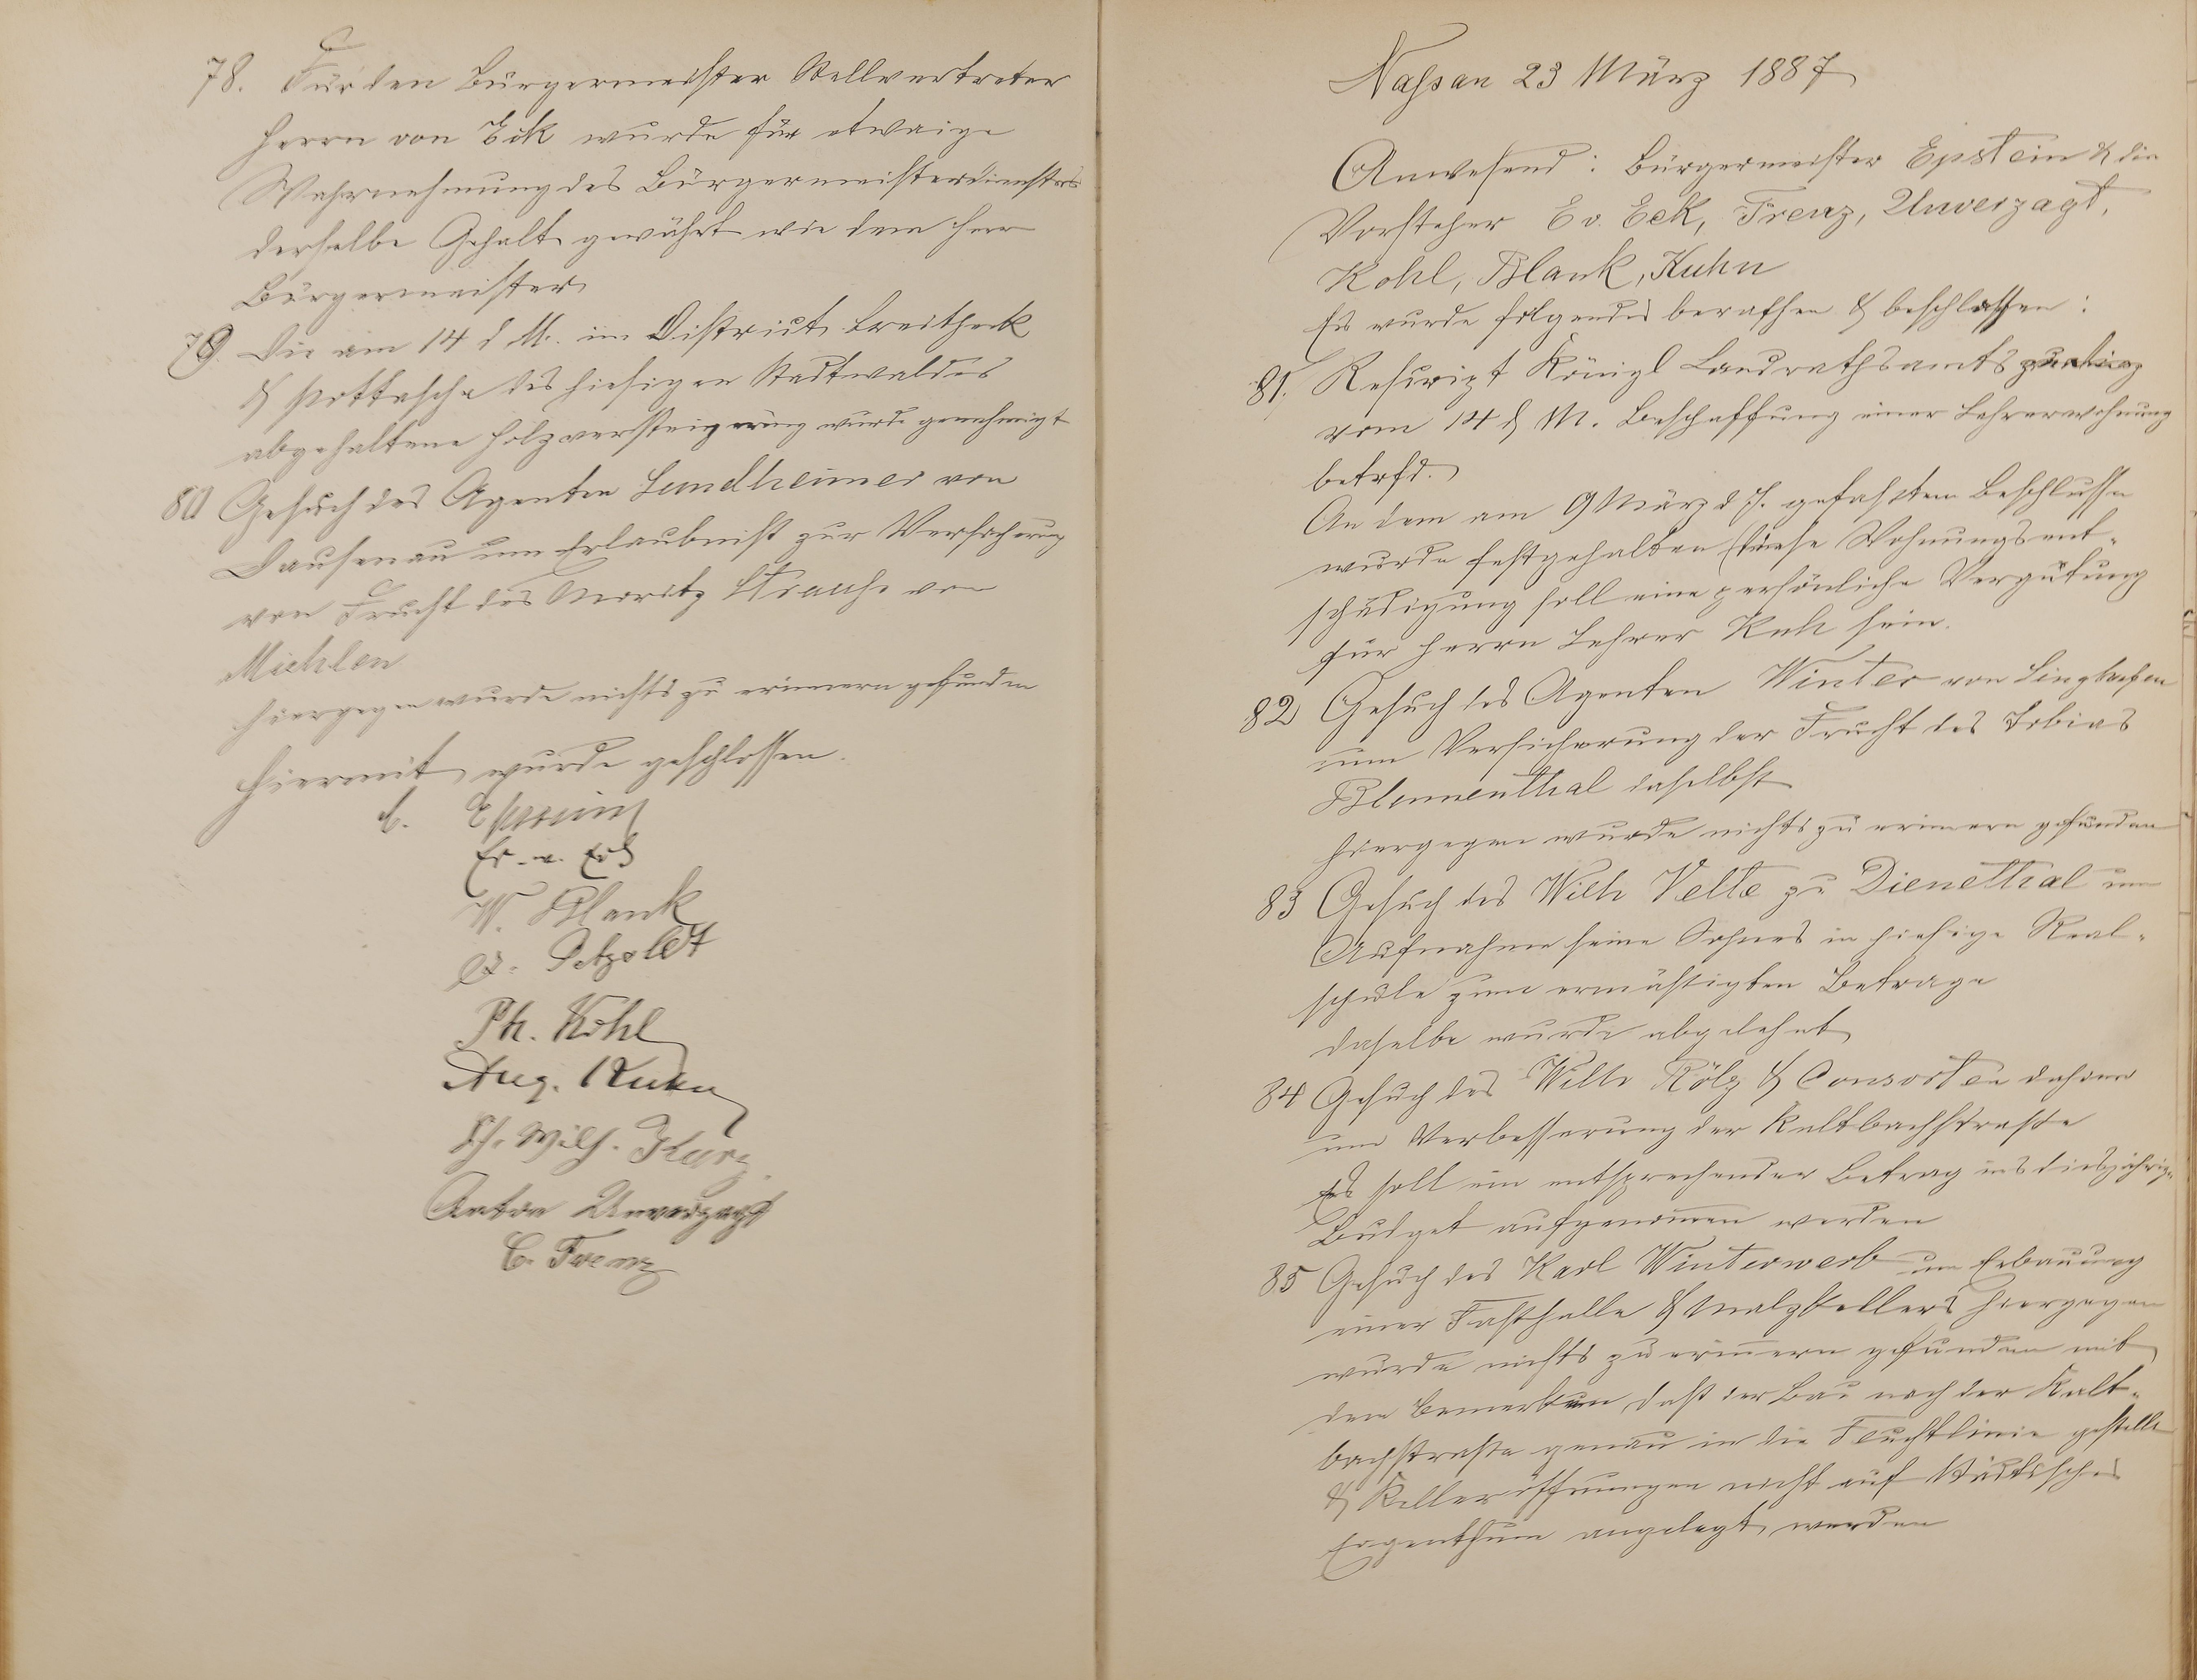 78. Für den Bürgermeister Stellvertreter
Herrn von Eck wurde für etwaige
Wahrnehmung des Bürgermeisterdienstes
derselbe Gehalt gewährt wie dem Herr
Bürgermeister
79. Die am 14 d M. im District Breitheck
& Pottasche des hiesigen Stadtwaldes
abgehaltene Holzversteigerung wurde genehmigt
80 Gesuch des Agenten Landheimer von
Dausenau um Erlaubniß zur Versicherung
von Frucht des Moritz Strauß von
Miehlen
Hiergegen wurde nichts zu erinnern gefunden
Hiermit wurde geschlossen.
Epstein
Er. v. Eck
W. Blank
Petzoldt
Ph. Kohl
Aug. Kuhn
Wilh. Kurz
Anton Unverzagt
C. Frenz
Nassau 23 März 1887
Anwesend: Bürgermeister Epstein & die
Vorsteher E v. Eck, Frenz, Unverzagt,
Kohl, Blank, Kuhn
Es wurde folgendes berathen & beschlossen:
81. Rescript Königl Landrathsamts
vom 14 d M. Beschaffung einer Lehrerwohnung
betrfd.
An dem am 9 März d J. gefaßten Beschlusse
wurde festgehalten diese Wohnungsent-
schädigung soll eine persönliche Vergütung
für Herrn Lehrer Kuh sein.
82 Gesuch des Agenten Winter von Singhofen
um Versicherung der Frucht des Tobias
Blumenthal daselbst
Hiergegen wurde nichts zu erinnern gefunden
83 Gesuch des Wilh Velte zu Dienethal um
Aufnahme seine Sohnes in hiesige Real-
schule zum ermäßigten Betrage
daselbe wurde abgelehnt
84 Gesuch des Wilh Rölz & Consorten dahier
um Verbesserung der Kaltbachstraße
Es soll ein entsprechender Betrag ins diesjährige
Budget aufgenom̄en werden
85 Gesuch des Karl Winterwerb um Erbauung
einer Faßhalle & Malzkellers Hiergegen
wurde nichts zu erin̄ern gefunden mit
dem Bemerken daß der Bau nach der Kalt-
bachstraße genau in die Fluchtlinie gestellt
& Kelleröffnungen nicht auf städtisches
Eigenthum angelegt werden